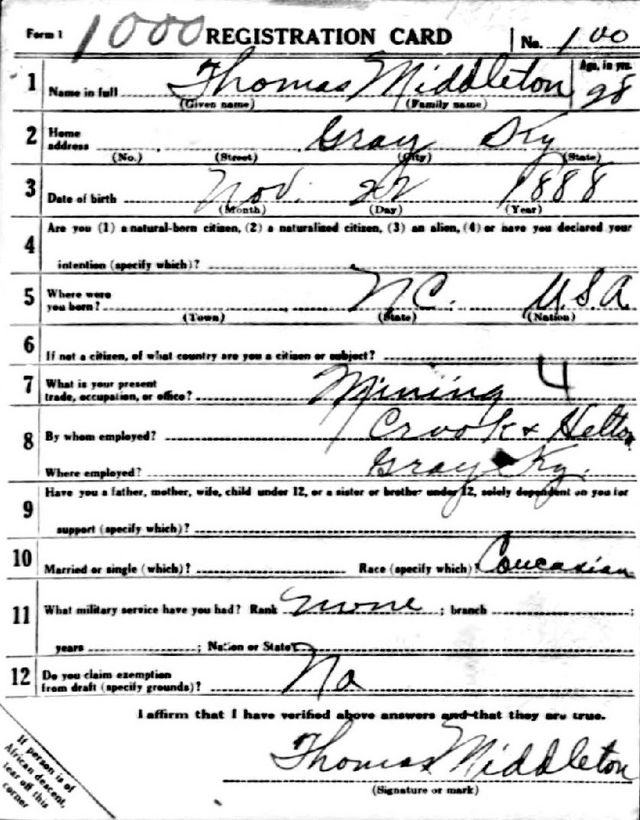 Form 1 1000 REGISTRATION CARD No. 100
1 Name in full Thomas Middleton Age, in yrs. 28
(Given name) (Family name)
2 Home address Gray Ky
(No.) (Street) (City) (State)
3 Date of birth Nov. 22 1888
(Month) (Day) (Year)
4 Are you (1) a natural-born citizen, (2) a naturalized citizen, (3) an alien, (4) or have you declared your
intention (specify which)?
5 Where were you born? N.C. U.S.A
(Town) (State) (Nation)
6 If not a citizen, of what country are you a citizen or subject?
7 What is your present trade, occupation, or office? Mining 4
8 By whom employed? Crook & Helton
Where employed? Gray Ky.
9 Have you a father, mother, wife, child under 12, or a sister or brother under 12, solely dependent on you for
support (specify which)?
10 Married or single (which)? Race (specify which)? Coucasian
11 What military service have you had? Rank None ; branch ;
years ; Nation or State
12 Do you claim exemption from draft (specify grounds)? No
I affirm that I have verified above answers and that they are true.
Thomas Middleton
(Signature or mark)
If person is of
African descent,
tear off this
corner